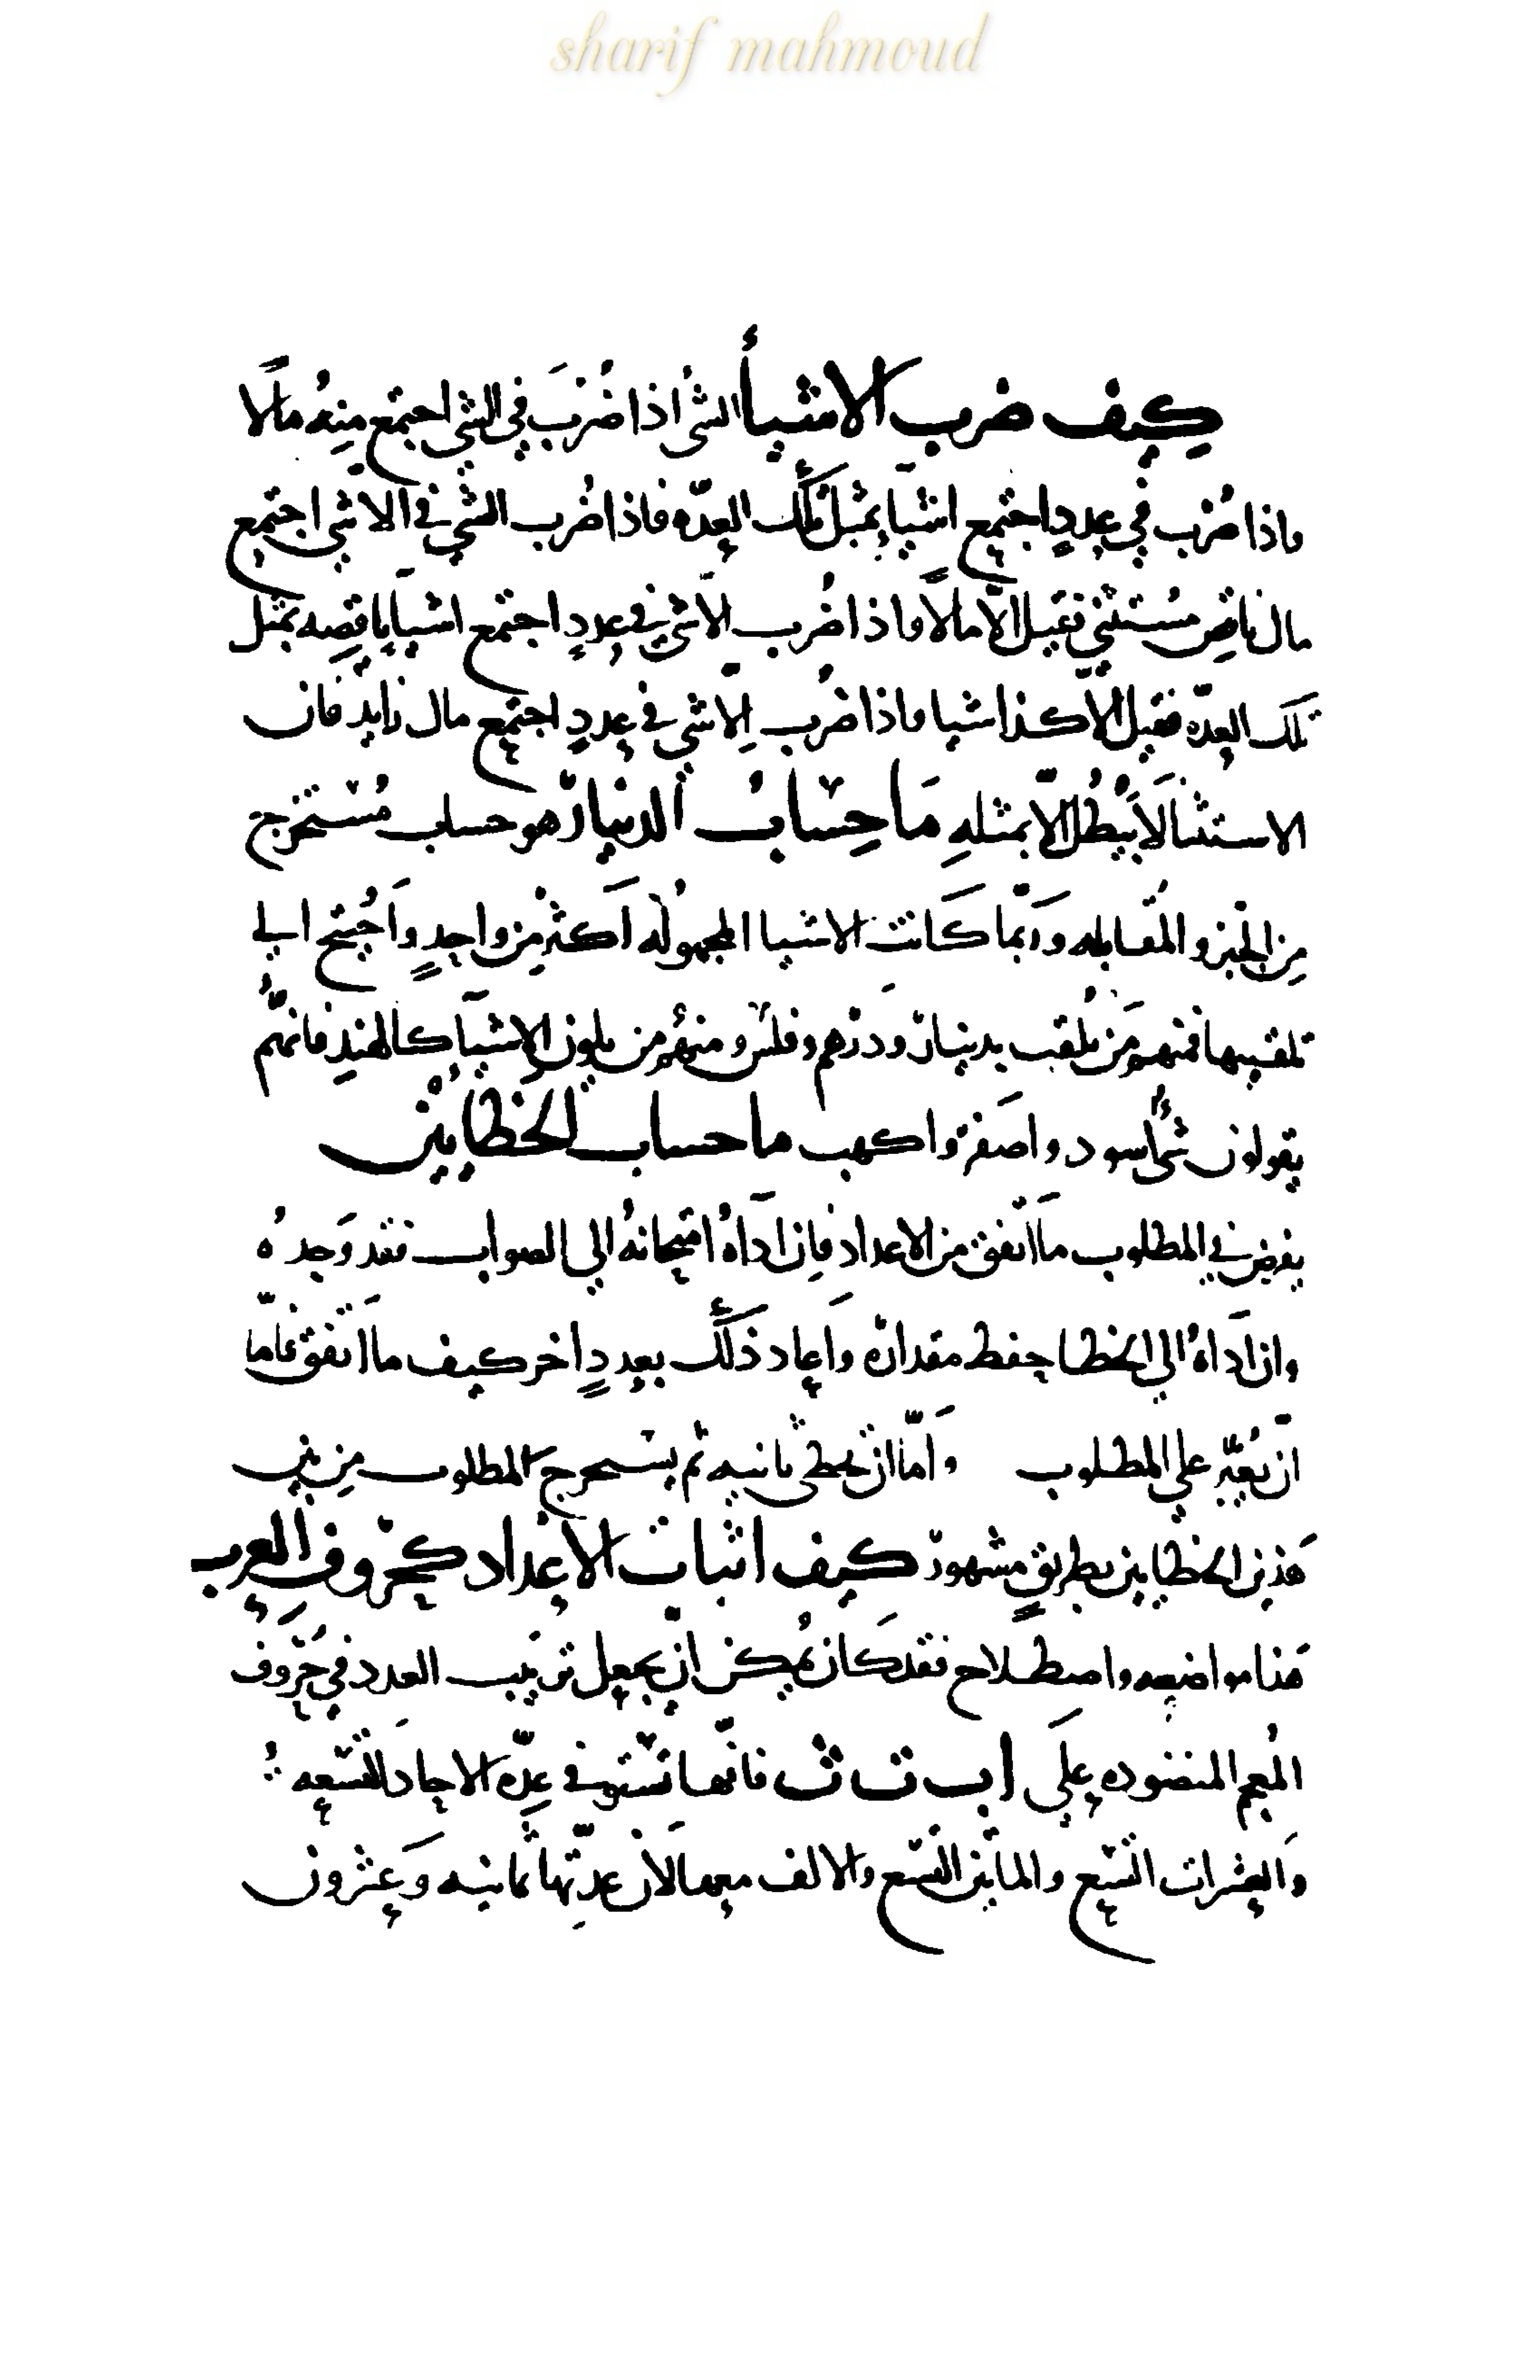 sharif mahmoud
كيف ضرب الاشيأ الشئ اذا ضُرَب في الشي اجتمع منه مالًا
واذا ضُرب في عددٍ اجتمع اشيآ بمثل تلك العدّه فاذا ضُرب الشي في الاشي اجتمع
مال ناقص مُستثني فقيل الّا مالًا واذا ضُرب الّا شي في عددٍ اجتمع اشيآ ناقصه بمثل
تلك العدّه فقيل الّا كذا شيا واذا ضُرب اِلّا شي في عددٍ اجتمع مال زايد فان
الاستثنا لَا يَبطُل الّا بمثلهِ مَا حِسَابُ الدينار هو حساب مُستخرج
مِن الجبر والمُقابله ورَبّما كَانت الاشيا المجهُوله اَكثر مِن واحدٍ واَحُتيج الي
تلقيبها فمنهم مَن يُلقب بدينار ودرهم وفلس ومنهُم من يلون الاشيآ كالهند فانهُم
يقولون شئ اسود واصَفر واكهب ما حساب الخطايين
يفرض في المطلوب مَا اتفق من الاعداد فاِن اَدّاهُ امتحانهُ الي الصواب فقد وَجدهُ
وان اَداهُ الي الخطا حفط مقدارُه واَعاد ذَلكَ بعددٍ اخر كيف ما اتفق فامّا
اَن يُعَبّر علي المطلوب واَمّا ان يخطي ثانيه ثم يستخرج المطلوب مِن بين
هَذين الخطايين بطريقٍ مشهور كيف اثبات الاعداد بحُروف العرب
هَذا مواضعه واصطلاح فقد كَان يُمكن ان يجعل ترتيب العدد في حُرَوف
المُعجم المنضوده علَي ا ب ت ث فانّها تستوفي عدّه الاحاد التسعه
وَالعشرات التسع والمايين التسع والالف معها لَان عدّتها ثمانيه وَعشرون